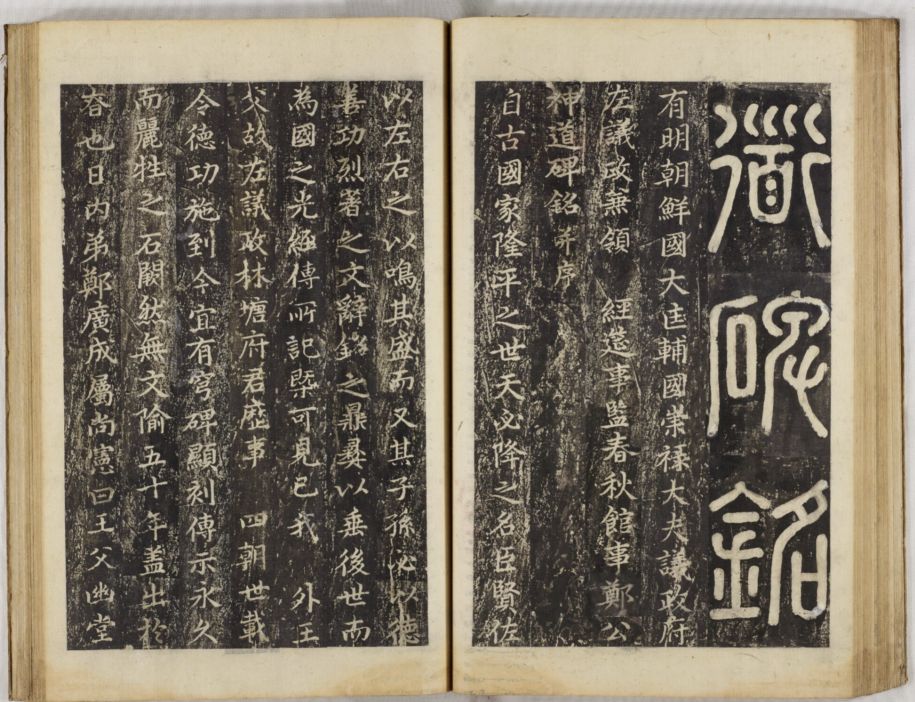 道碑銘
有明朝鮮國大匡輔國崇祿大夫議政府
左議政兼領 經筵事監春秋館事鄭公
神道碑銘并序
自古國家隆平之世天必降之名臣賢佐
以左右之以鳴其盛而又其子孫必以德
善功烈著之文辭銘之鼎彝以垂後世而
為國之光經傳所記槩可見已我 外王
父故左議政林塘府君歷事 四朝世載
令德功施到今宜有穹碑顯刻傳示永久
而麗牲之石闕然無文隃五十年盖出於
昚也日內弟鄭廣成屬尚憲曰王父幽堂